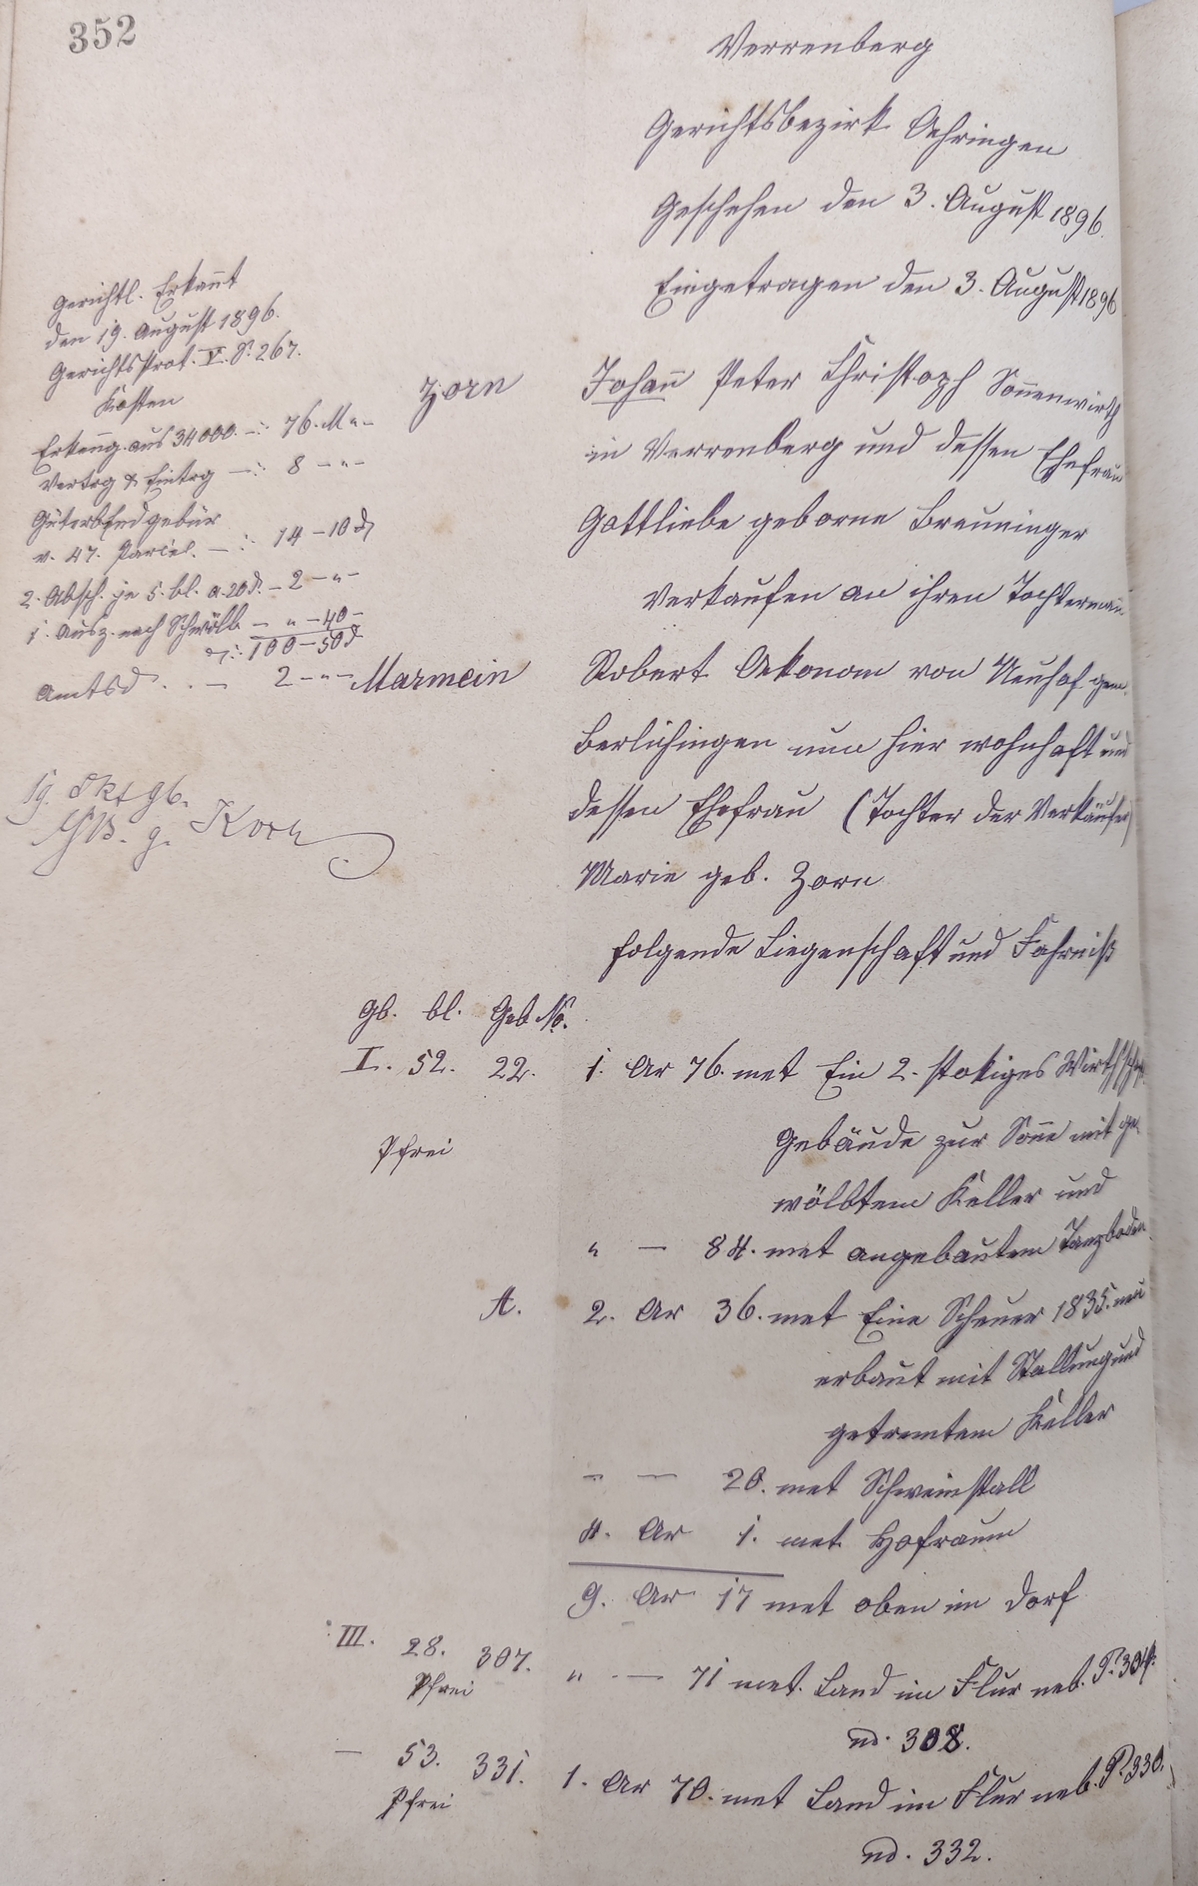 352
Verrenberg
Gerichtsbezirk Oehringen
Geschehen den 3. August 1896.
Eingetragen den 3. August 1896
Gerichtl. Erkannt
den 19. August 1896.
Gerichtsprot. V. S. 267.
Kosten
Erkenng. aus 34000. –:– 76. M „ –
Vertrg & Eintrg –:– 8 – „ –
Güterbuchgebür
v. 47. Parcel. –:– 14 – 10 d
2. Absch. je 5. bl. a 20 d. – 2 – „ –
1. Ausz. nach Schwölb – „ – 40 –
100 – 50 d
Amtsd. . . – 2 – „ –
Koch
Zorn Johann Peter Christoph Sonnenwirth
in Verrenberg und dessen Ehefrau
Gottliebe geborne Breuninger
verkaufen an ihren Tochtermann
Marmein Robert Oekonom von Neuhof gem.
Berlichingen nun hier wohnhaft und
dessen Ehefrau (Tochter der Verkäufer)
Marie geb. Zorn
folgende Liegenschaft und Fahrniß
Gb. bl. Geb. No.
I. 52. 22. 1. Ar 76. met Ein 2. stokiges
Pfrei Gebäude zur Sonne mit ge-
wölbtem Keller und
„ — 84. met angebautem Tanzboden
A. 2. Ar 36. met Eine Scheuer 1835. neu
erbaut mit Stallung und
getremtem Keller
– — 20. met Schweinstall
4. Ar 1. met Hofraum
9. Ar 17 met oben im Dorf
III. 28. 307. „ — 71 met. Land im Flur neb. P. 304.
Pfrei
nd. 308.
– 53. 331. 1. Ar 70. met Land im Flur neb. P. 330.
Pfrei
nd. 332.